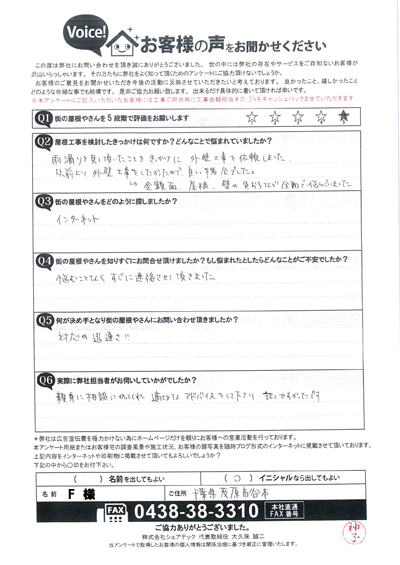 Voice!
お客様の声をお聞かせください
この度は弊社にお問い合わせを頂き誠にありがとうございました。世の中には弊社の存在やサービスをご存知ないお客様が
沢山いらっしゃいます。その方たちに弊社をよく知って頂くためのアンケートにご協力頂けないでしょうか。
お客様のご意見をお聞かせいただき今後の活動に反映させていただきたいと考えております。良かったこと、嬉しかったこと
どのような些細な事でも結構です。是非ご協力お願い致します。出来るだけ具体的に書いて頂ければ幸いです。
※本アンケートにご記入いただいたお客様には工事ご用命時に工事金額総合計の 2%をキャッシュバックさせていただきます
Q1 街の屋根やさんを5段階で評価をお願いします ☆ ☆ ☆ ☆ ★
Q2 屋根工事を検討したきっかけは何ですか?どんなことで悩まれていましたか?
雨漏りを見て頂いたことをきっかけに 外壁工事を依頼しました。
以前より外壁工事をしたかったので良い機会でした。
↳ 金額面、屋根、壁の色など全面で悩んでいました
Q3 街の屋根やさんをどのように探しましたか?
インターネット
Q4 街の屋根やさんを知りすぐにお問合せ頂けますか?もし悩まれたとしたらどんなことがご不安でしたか?
悩むことなくすぐに連絡させて頂きました
Q5 何が決め手となり街の屋根やさんにお問い合わせ頂きましたか?
対応の迅速さ!!
Q6 実際に弊社担当者がお伺いしていかがでしたか?
親身に相談にのってくれ 適切なアドバイスをして下さり 話しやすかったです
*弊社は広告宣伝費を極力かけない為にホームページだけを頼りにお客様への営業活動を行っております。
本アンケート用紙またはお客様宅の調査風景や施工状況、お客様の顔写真を随時ブログ形式のインターネットに掲載させて頂いております。
上記内容をインターネットや印刷物に掲載させて頂いてもよろしいでしょうか?
下記の中から〇印をお付下さい。
( ) 名前を出してもよい ( ○ ) イニシャルなら出してもよい
名前 F 様 ご住所 千葉県茂原市谷本
FAX 0438-38-3310 本社直通 FAX番号
ご協力ありがとうございました。
株式会社シェアテック 代表取締役 大久保 誠二
当アンケートで取得したお客様の個人情報は関係法規に基づき厳正に管理いたします。
神子